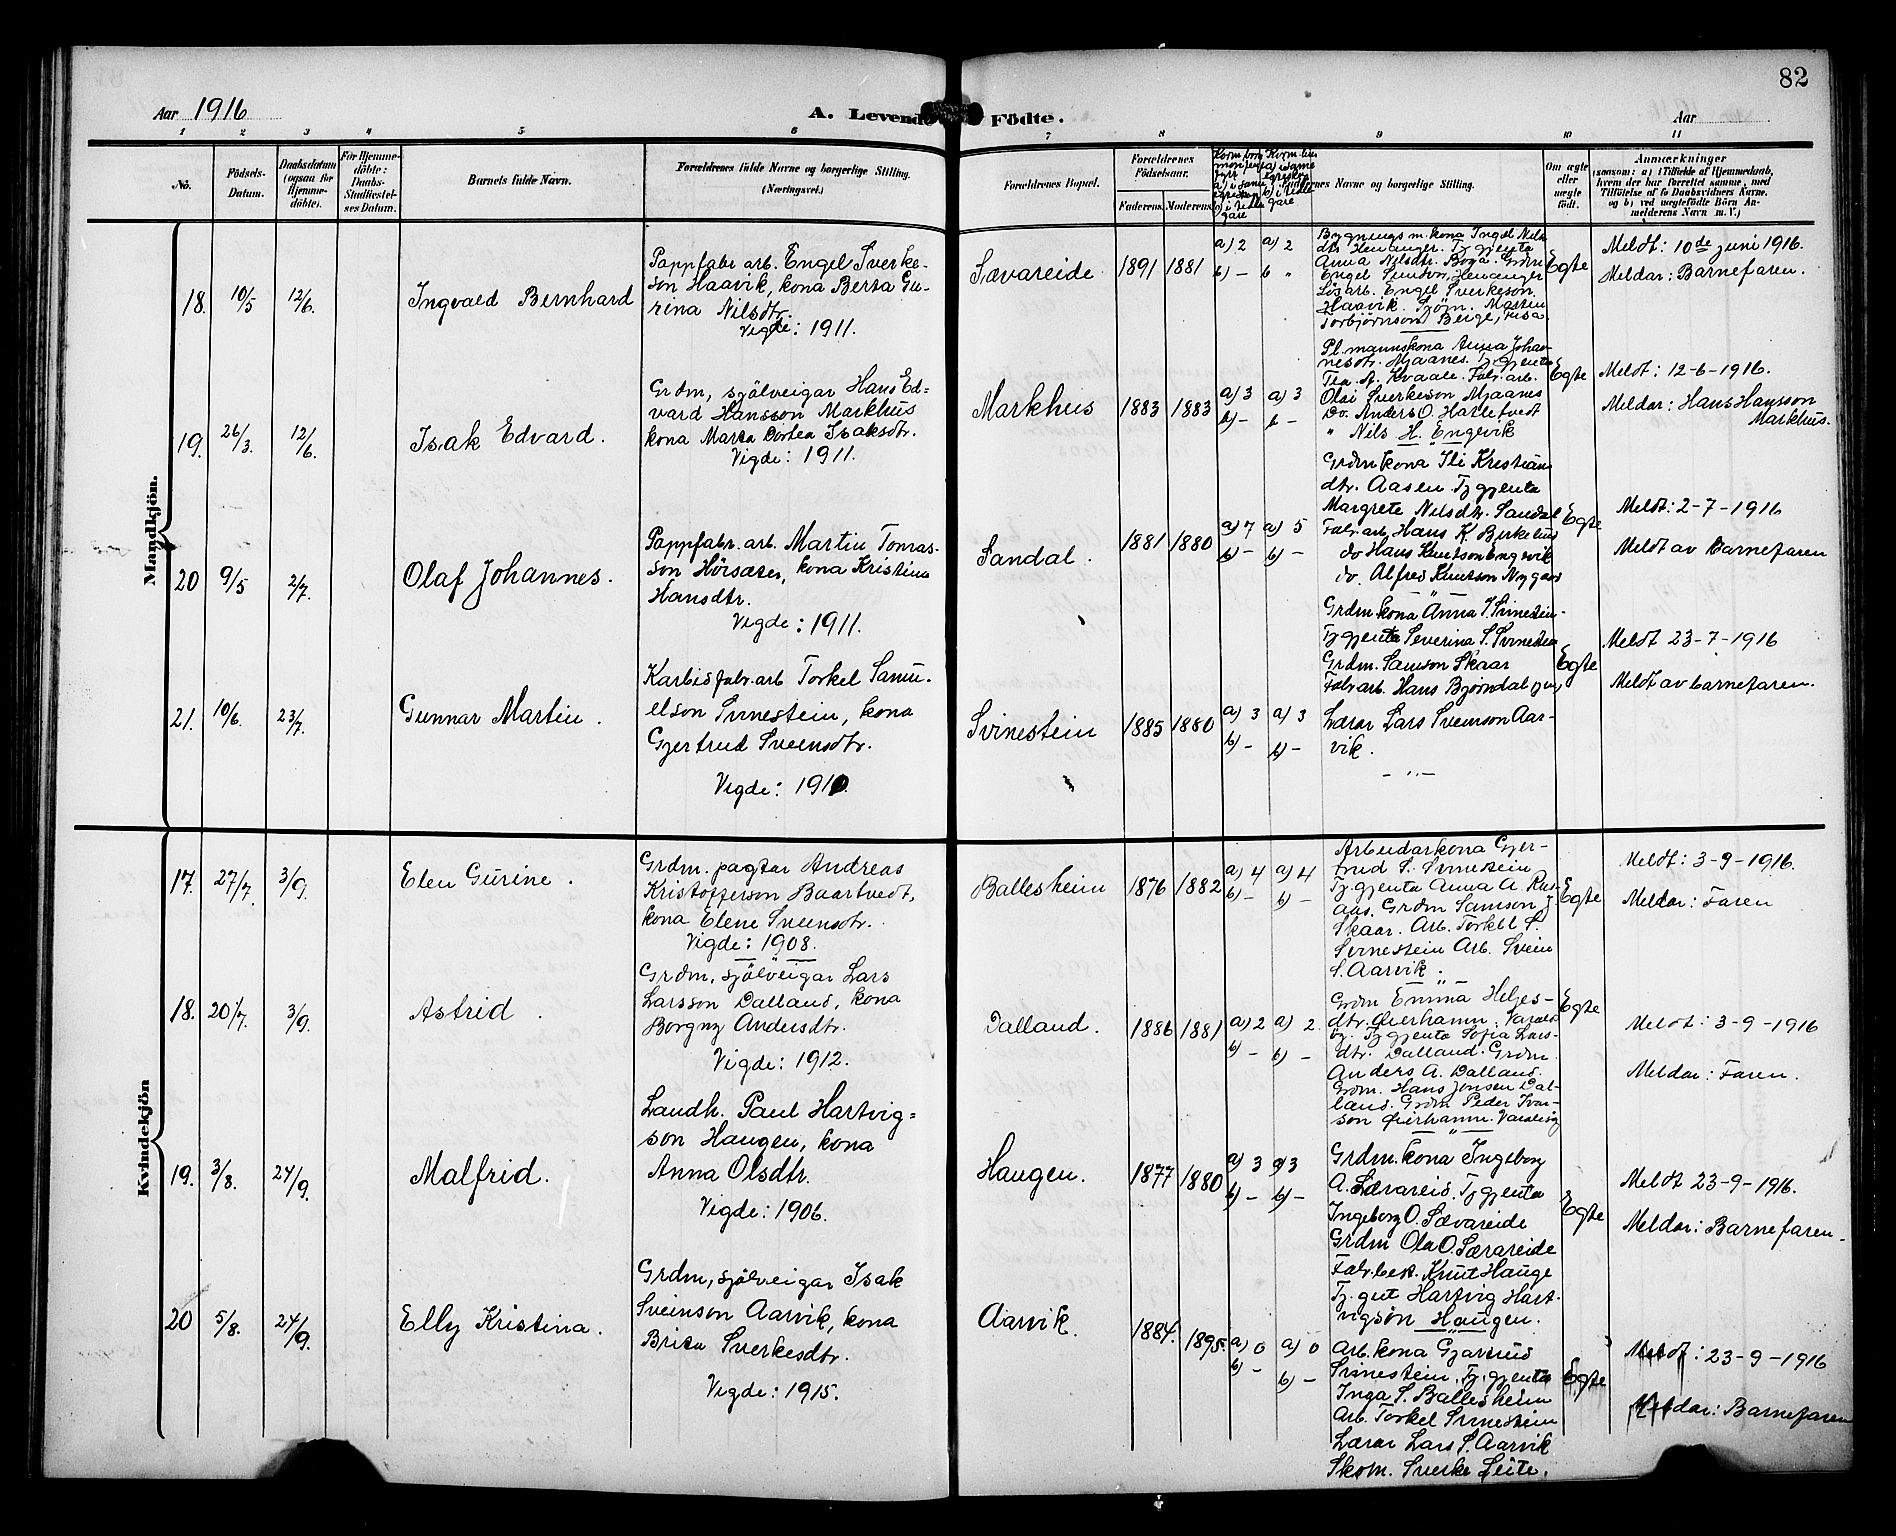 82
Aar 1916
A. Levende Födte.
Aar
1 2 3 4 5 6 7 8 9 10 11
No.
Födsels-
Datum.
Daabsdatum
(ogsaa for
Hjemme-
döbte).
For Hjemme-
döbte:
Daabs-
Stadfæstel-
ses Datum.
Barnets fulde Navn.
Forældrenes fulde Navne og borgerlige Stilling.
(Næringsvei.)
Forældrenes Bopæl.
Forældrenes
Födselsaar.
Faderens. Moderens.
Navne og borgerlige Stilling.
Om ægte
eller
uægte
födt.
Anmærkninger
(saasom: a) i Tilfælde af Hjemmedaab,
hvem der har forrettet samme, med
Tilföielse af to Daabsvidners Navne,
og b) ved uægtefödte Börn An-
melderens Navn m. V.)
Mandkjön.
18. 10/5 12/6. Ingvald Bernhard
Pappfabr arb. Engel Sverke-
son Haavik, kona Berta Gu-
rina Nilsdtr.
Vigde: 1911.
Sævareide 1891 1881
a) 2 a) 2
b) – b "
Bygningsm. kona Ingel Nils-
dtr Henanger. Tj. gjenta
Anna Nilsdtr. Boga. Grdm
Engel Henanger
Lösarb. Engel Sverkeson
Haavik. Martin
Torbjörnson Beige,
Egte
Meldt: 10de juni 1916.
Meldar: Barnefaren.
19. 26/3. 12/6. Isak Edvard.
Grdm, sjölveigar Hans Ed-
vard Hansson Markhus
kona Marta Dortea Isaksdtr.
Vigde: 1911.
Markhus 1883 1883
a) 3 a) 3
b) – b –
Pl. mannskona Anna Johan-
nesdtr. Mjaanes. Tj. gjenta
Tea A. Kvaale. Fabr. arb.
Olai Sverkeson Mjaanes
Do. Anders O. Hartvedt
" Nils H. Engevik
Egte
Meldt: 12-6-1916.
Meldar: Hans Hansson
Markhus.
20 9/5 2/7. Olaf Johannes.
Pappfabr. arb. Martin Tomas-
son Hörsæter, kona Kristina
Hansdtr.
Vigde: 1911.
Sandal. 1881 1880
a) 7 a) 5
b) – b) –
Grdm kona Ili Kristian
dtr. Aasen Tj. gjenta
Margrete Nilsdtr. Sandal
Fabr. arb. Hans K. Birkeland
do Hans Knutson Engevik
do. Alfred Knutson Nygard
Egte
Meldt: 2-7-1916
Meldt av Barnefaren
21. 10/6. 23/7. Gunnar Martin.
Karbidfabr. arb Torkel Samu-
elson Svinestein, kona
Gjertrud Sveinsdtr.
Vigde: 1910.
Svinestein 1885 1880
a) 3 a) 3
b) – b) –
Grdm. kona Anna S. Svinestein
Tj gjenta Severina S. Svinestein
Grdm. Samson Skaar
Fabr arb. Hans Bjørndal
Lærar Lars Sveinson Aar-
vik.
Egte
Meldt 23-7-1916
Meldt av barnefaren.
Kvindekjön
17. 27/7. 3/9. Elen Gurine.
Grdm. pagtar Andreas
Kristofferson Baartvedt,
kona Elene Sveinsdtr.
Vigde: 1908.
Ballesheim 1876 1882
a) 4 a) 4
b) – b) –
Arbeidarkona Gjer-
trud S. Svinestein
Tj. gjenta Anna A. Rus-
aas. Grdm Samson J
Skaar. Arb. Torkel S.
Svinestein Arb. Svein
S. Aarvik.
Egte
Meldt: 3-9-1916.
Meldar: Faren
18. 20/7. 3/9. Astrid.
Grdm, sjölveigar Lars
Larsson Dalland, kona
Borgny Andersdtr.
Vigde: 1912.
Dalland. 1886 1881
a) 2 a) 2.
b) – b) –
Grdm Emma Helges-
dtr. Øierhamn. Varalds-
øy. Tj gjenta Sofia Lars-
dtr. Dalland. Grdm
Anders A. Dalland.
Grdm. Hans Jonsen Dal-
land. Grdm Peder Ivar-
son Øierhamn. Varaldsøy
Egte
Meldt: 3-9-1916
Meldar: Faren.
19. 3/8. 24/9. Malfrid.
Landh. Paul Hartvig-
son Haugen, kona
Anna Olsdtr.
Vigde: 1906.
Haugen. 1877 1880
a) 3 a) 3
b) – b) –
Grdm. kona Ingeborg
A. Sævareid. Tj gjenta
Ingeborg O. Sævareide
Grdm Ola O. Sævareide
Fabr. best. Knut Hauge
Tj. gut Hartvig Hart-
vigsön Haugen.
Egte
Meldt 23-9-1916.
Meldar: Barnefaren
20 5/8. 24/9. Elly Kristina.
Grdm, sjölveigar Isak
Sveinson Aarvik, kona
Brita Sverkesdtr.
Vigde: 1915.
Aarvik. 1884. 1895.
a) 0 a) 0
b) – b) –
Arb. kona Gjartrud
Svinestein. Tj. gjenta
Inga S. Ballesheim
Arb. Torkel Svinestein
Lærar Lars S. Aarvik
Skom. Sverke Leite.
Egte
Meldt: 23-9-1916
Meldar: Barnefaren